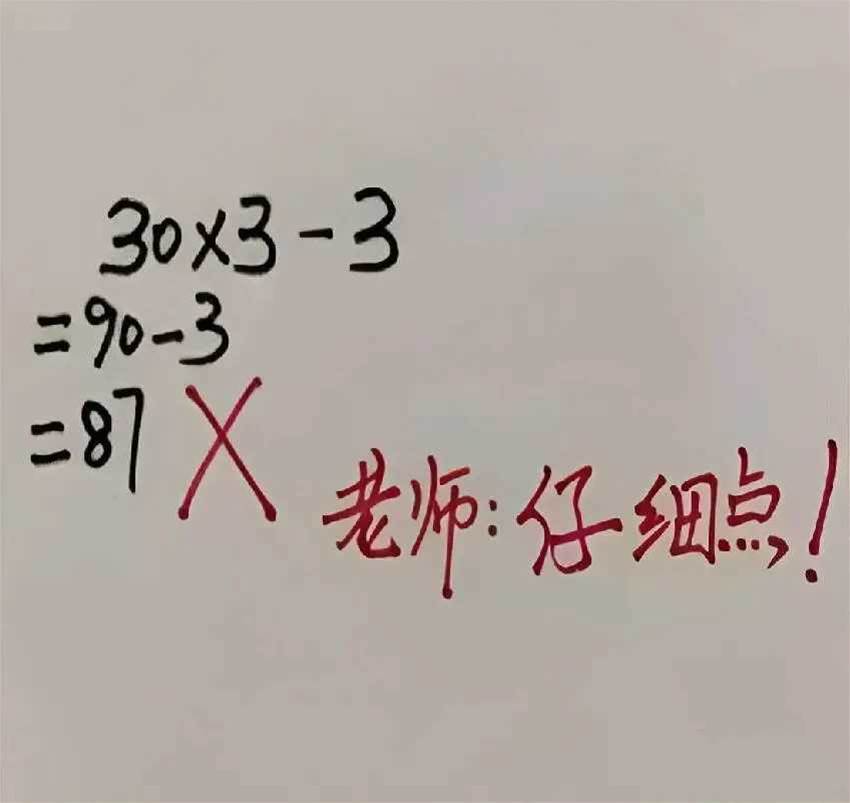 30×3-3
=90-3
=87 ×
老师:仔细点,!